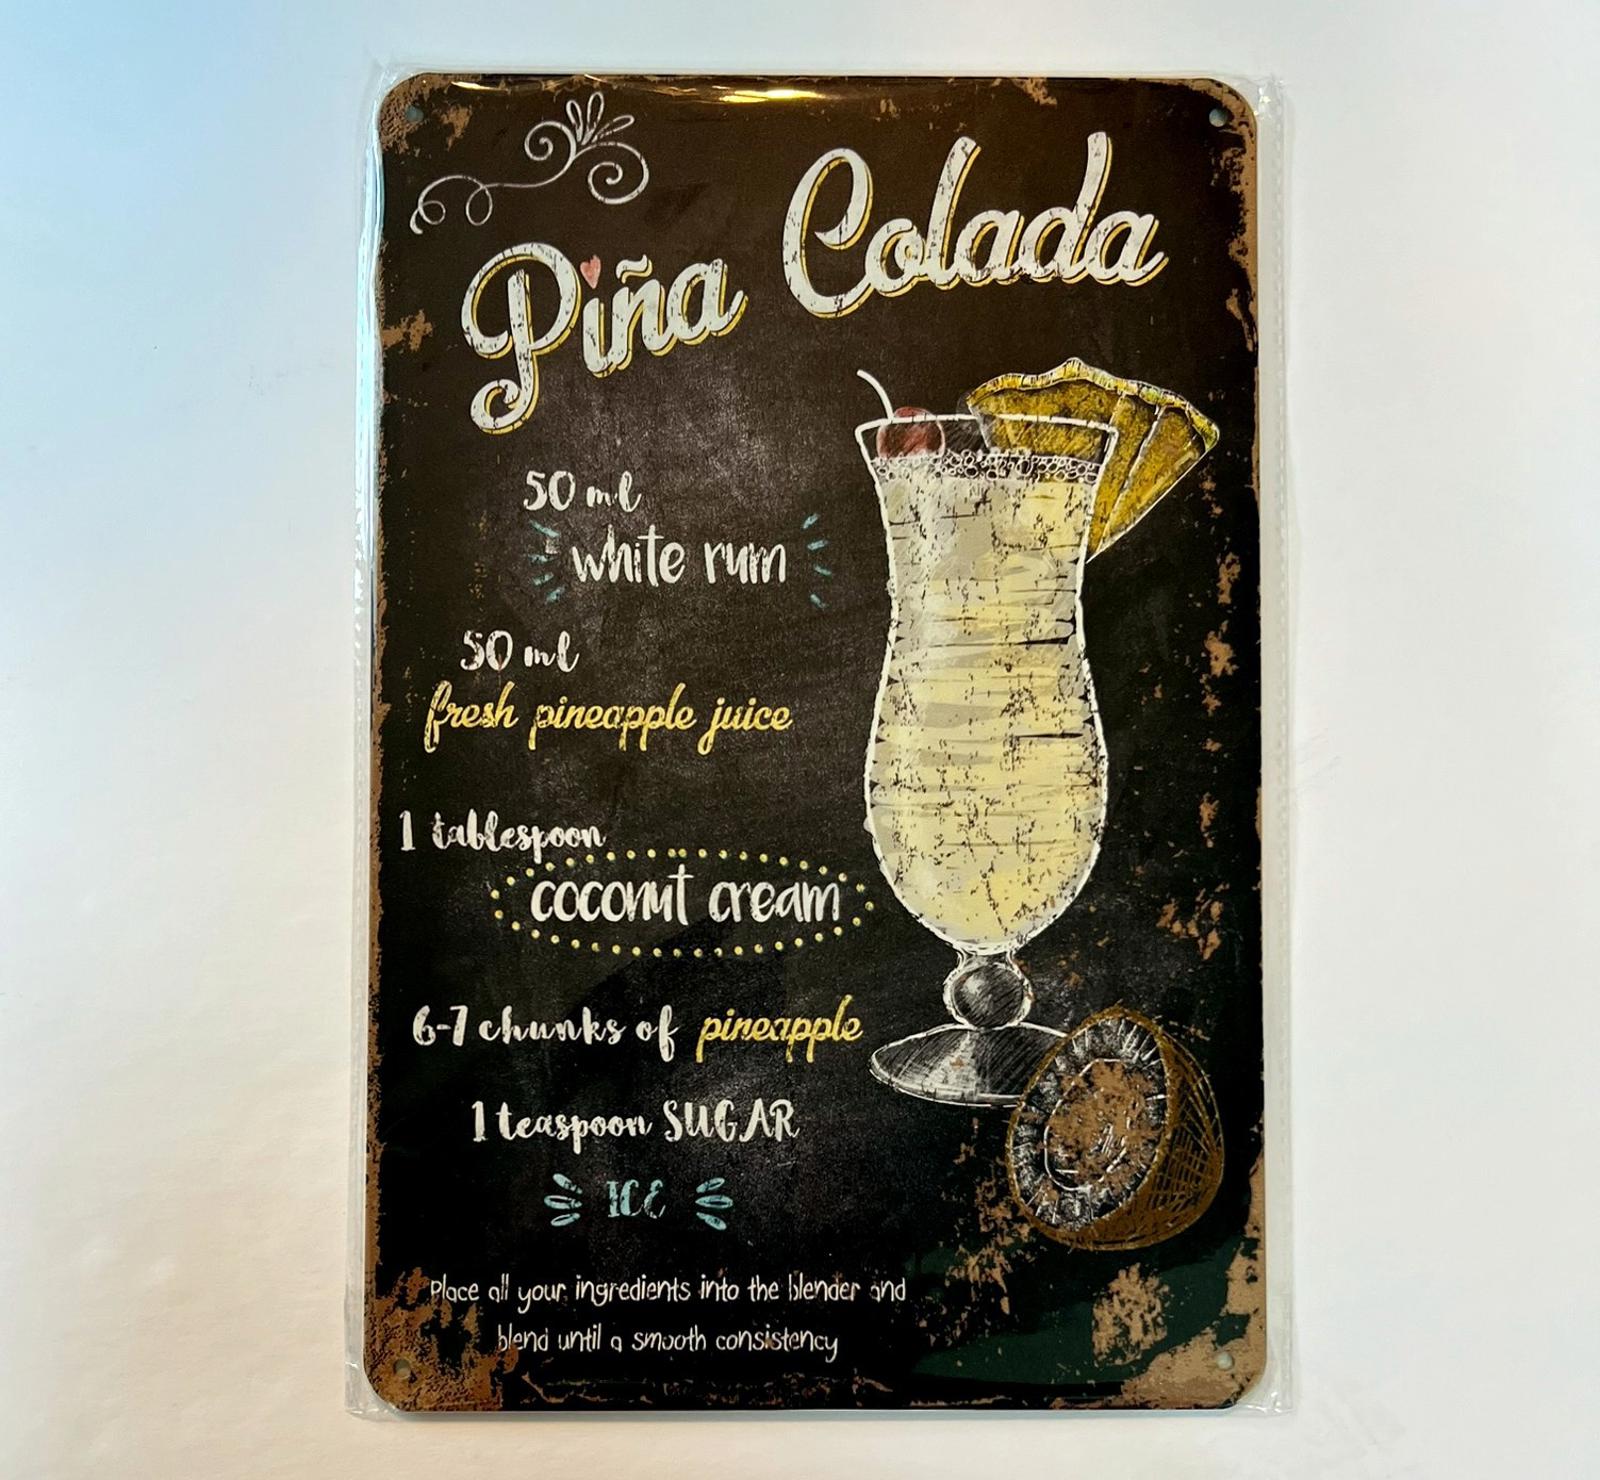 Piña Colada
50 ml
white rum
50 ml
fresh pineapple juice
1 tablespoon
coconut cream
6-7 chunks of pineapple
1 teaspoon SUGAR
ICE
Place all your ingredients into the blender and
blend until a smooth consistency